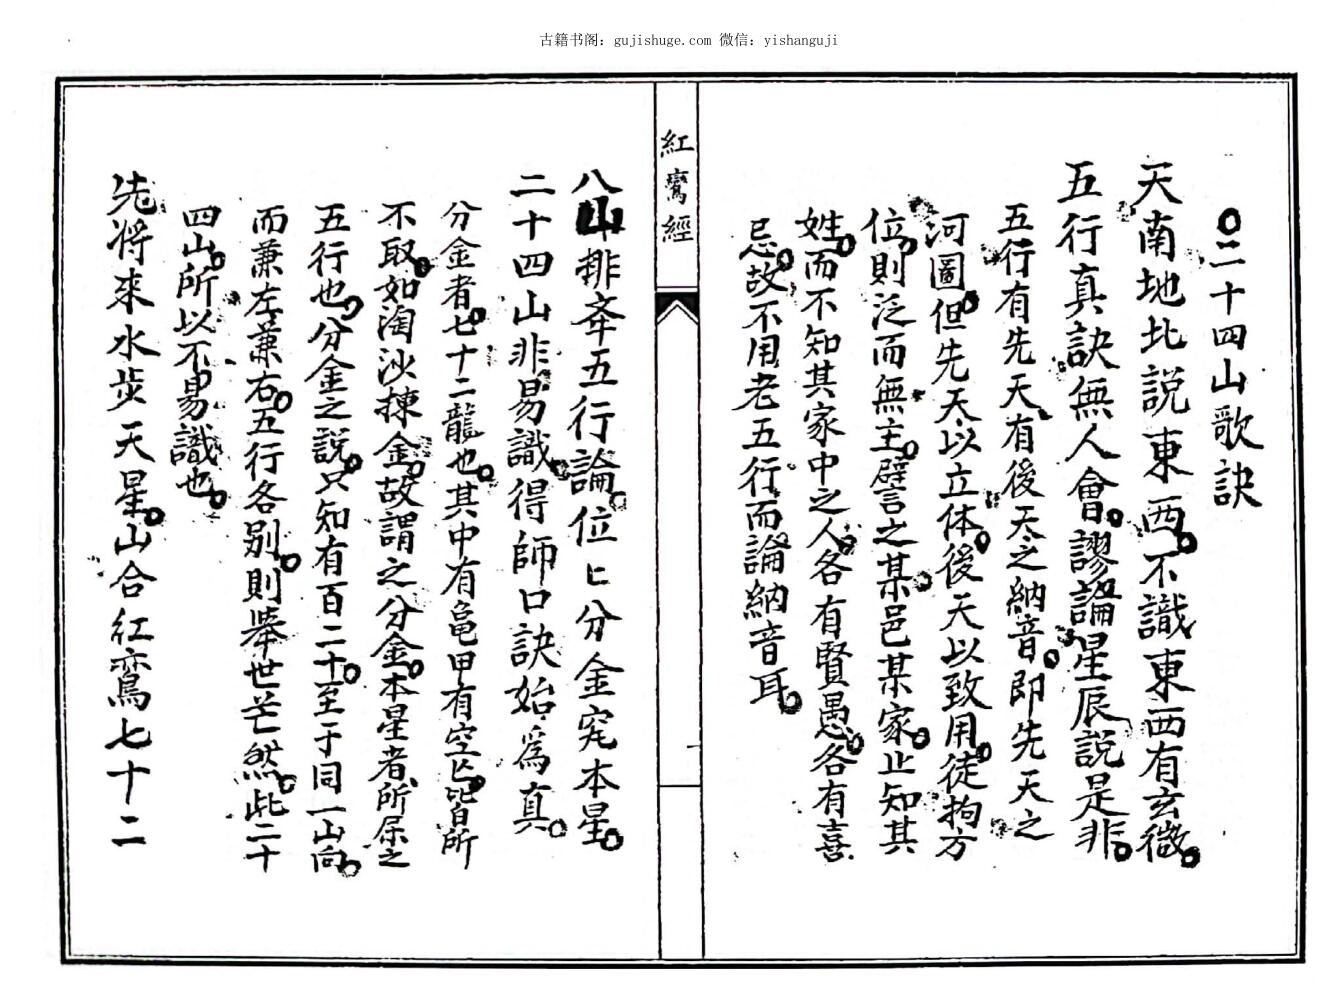 古籍书阁：gujishuge.com 微信：yishanguji
○二十四山歌訣
天南地北説東西○不識東西有玄微○
五行真訣無人會○謬論星辰説是非○
五行有先天、有後天之納音○即先天之
河圖○但先天以立体○後天以致用○徒拘方
位○則泛而無主○譬言之某○邑某家○止知其
姓○而不知其家中之人○各有賢愚○各有喜
忌○故不用老五行而論納音耳○
紅鸞經
一
八山排來五行論○位匕分金究本星○
二十四山非易識○得師口訣始為真○
分金者○七十二龍也○其中有龜甲有空亡○皆所
不取○如淘沙揀金○故謂之分金○本星者○所屬之
五行也○分金之說○只知有百二十○至于同一山向○
而兼左兼右○五行各别○則舉世茫然○此二十
四山○所以不易識也○
先將來水步天星○山合紅鸞七十二